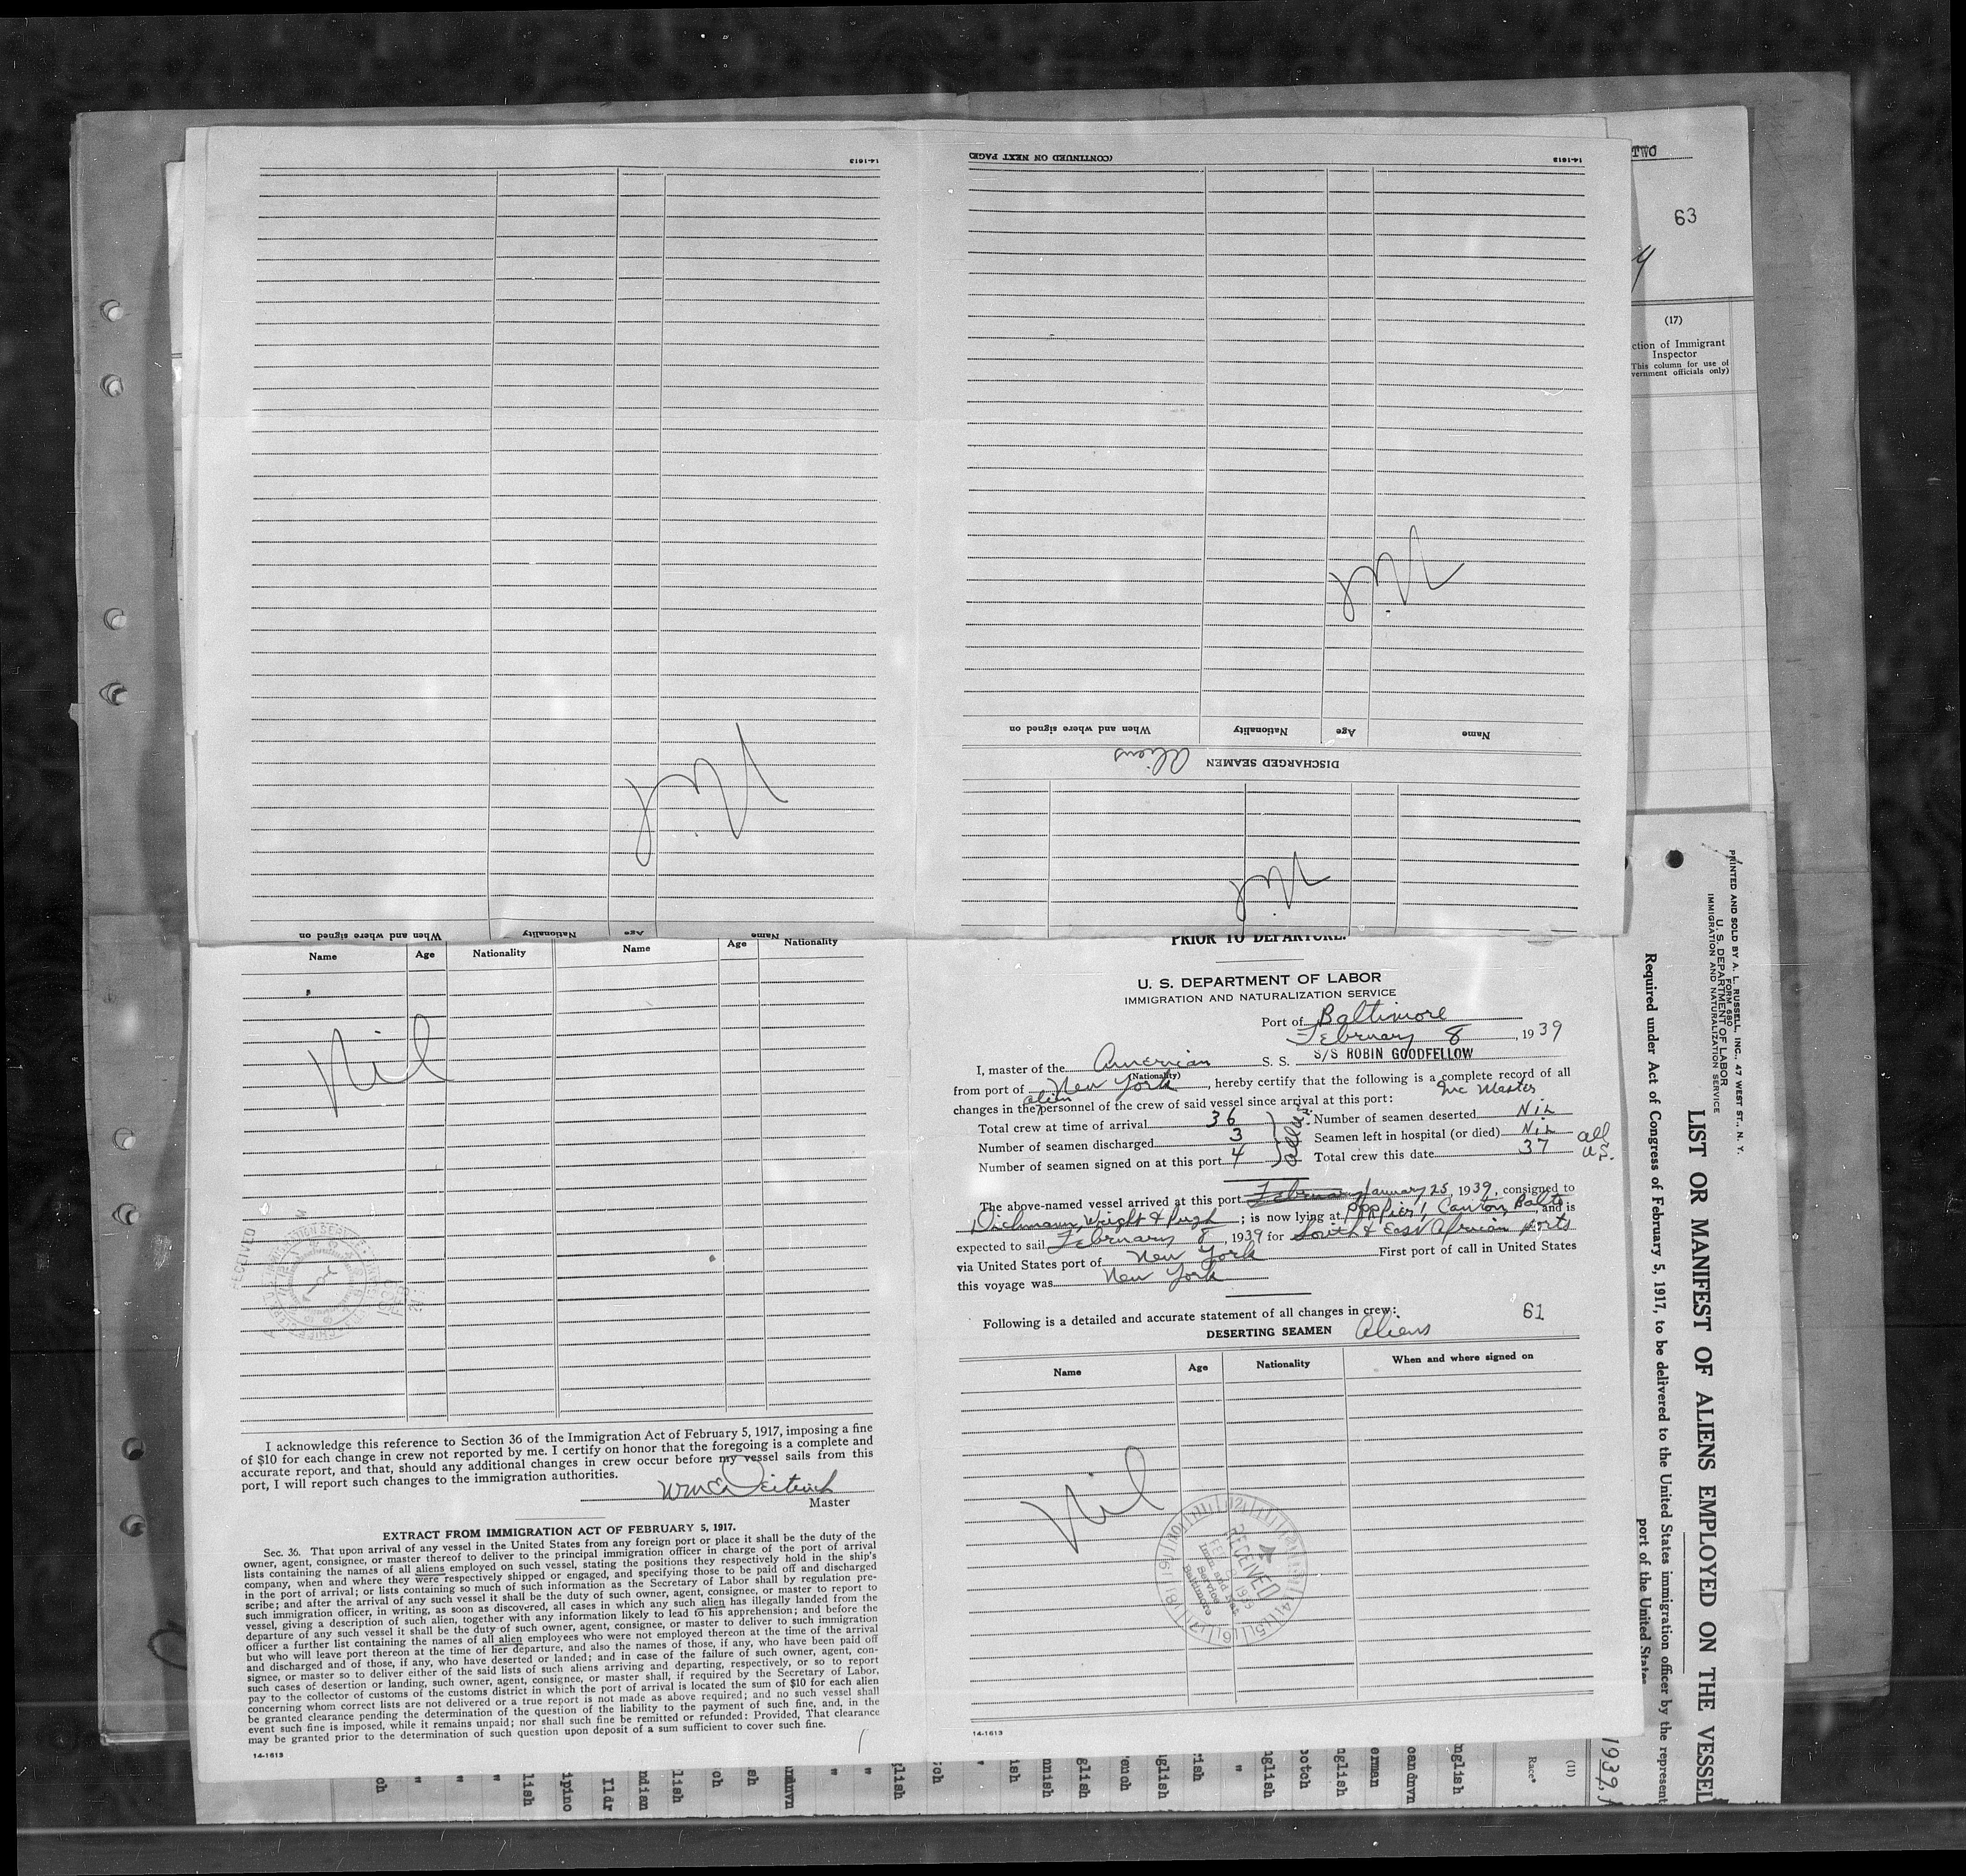 14-1613
(CONTINUED ON NEXT PAGE)
14-1613
Nil
Nil
When and where signed on
Nationality
Age
Name
DISCHARGED SEAMEN Aliens
Nil
When and where signed on
Nationality
Age
Name
TWO
63
(17)
ction of Immigrant
Inspector
This column for use of
vernment officials only)
Name Age Nationality Name Age Nationality
Nil
RECEIVED
I acknowledge this reference to Section 36 of the Immigration Act of February 5, 1917, imposing a fine
of $10 for each change in crew not reported by me. I certify on honor that the foregoing is a complete and
accurate report, and that, should any additional changes in crew occur before my vessel sails from this
port, I will report such changes to the immigration authorities.
Master
EXTRACT FROM IMMIGRATION ACT OF FEBRUARY 5, 1917.
Sec. 36. That upon arrival of any vessel in the United States from any foreign port or place it shall be the duty of the
owner, agent, consignee, or master thereof to deliver to the principal immigration officer in charge of the port of arrival
lists containing the names of all aliens employed on such vessel, stating the positions they respectively hold in the ship's
company, when and where they were respectively shipped or engaged, and specifying those to be paid off and discharged
in the port of arrival; or lists containing so much of such information as the Secretary of Labor shall by regulation pre-
scribe; and after the arrival of any such vessel it shall be the duty of such owner, agent, consignee, or master to report to
such immigration officer, in writing, as soon as discovered, all cases in which any such alien has illegally landed from the
vessel, giving a description of such alien, together with any information likely to lead to his apprehension; and before the
departure of any such vessel it shall be the duty of such owner, agent, consignee, or master to deliver to such immigration
officer a further list containing the names of all alien employees who were not employed thereon at the time of the arrival
but who will leave port thereon at the time of her departure, and also the names of those, if any, who have been paid off
and discharged and of those, if any, who have deserted or landed; and in case of the failure of such owner, agent, con-
signee, or master so to deliver either of the said lists of such aliens arriving and departing, respectively, or so to report
such cases of desertion or landing, such owner, agent, consignee, or master shall, if required by the Secretary of Labor,
pay to the collector of customs of the customs district in which the port of arrival is located the sum of $10 for each alien
concerning whom correct lists are not delivered or a true report is not made as above required; and no such vessel shall
be granted clearance pending the determination of the question of the liability to the payment of such fine, and, in the
event such fine is imposed, while it remains unpaid; nor shall such fine be remitted or refunded: Provided, That clearance
may be granted prior to the determination of such question upon deposit of a sum sufficient to cover such fine.
14-1613
PRIOR TO DEPARTURE.
U. S. DEPARTMENT OF LABOR
IMMIGRATION AND NATURALIZATION SERVICE
Port of Baltimore
February 8, 1939
I, master of the American S. S. S/S ROBIN GOODFELLOW
(Nationality)
from port of New York, hereby certify that the following is a complete record of all
alien Inc Master
changes in the personnel of the crew of said vessel since arrival at this port:
Total crew at time of arrival 36 Number of seamen deserted Nil
Number of seamen discharged 3 Seamen left in hospital (or died) Nil
Number of seamen signed on at this port 4 all U.S. Total crew this date 37 all U.S.
The above-named vessel arrived at this port February January 25, 1939, consigned to
Dichmann, Wright & Pugh; is now lying at Pier 1, Canton, Balto. and is
expected to sail February 8, 1939 for South & East African ports
via United States port of New York First port of call in United States
this voyage was New York
Following is a detailed and accurate statement of all changes in crew: 61
DESERTING SEAMEN Aliens
Name Age Nationality When and where signed on
Nil
RECEIVED
Service
Baltimore
14-1613
PRINTED AND SOLD BY A. L. RUSSELL, INC., 47 WEST ST., N. Y.
FORM 680
U. S. DEPARTMENT OF LABOR
IMMIGRATION AND NATURALIZATION SERVICE
LIST OR MANIFEST OF ALIENS EMPLOYED ON THE VESSEL
Required under Act of Congress of February 5, 1917, to be delivered to the United States immigration officer by the represent
port of the United States
1939,
(11)
Race*
nglish
oandnvn
erman
nglish
ootch
nglish
"
rish
nglish
ench
glish
nnish
ish
"
tch
glish
"
"
sh
ch
lish
ndian
Ildr
ipino
lish
"
"
"
ch